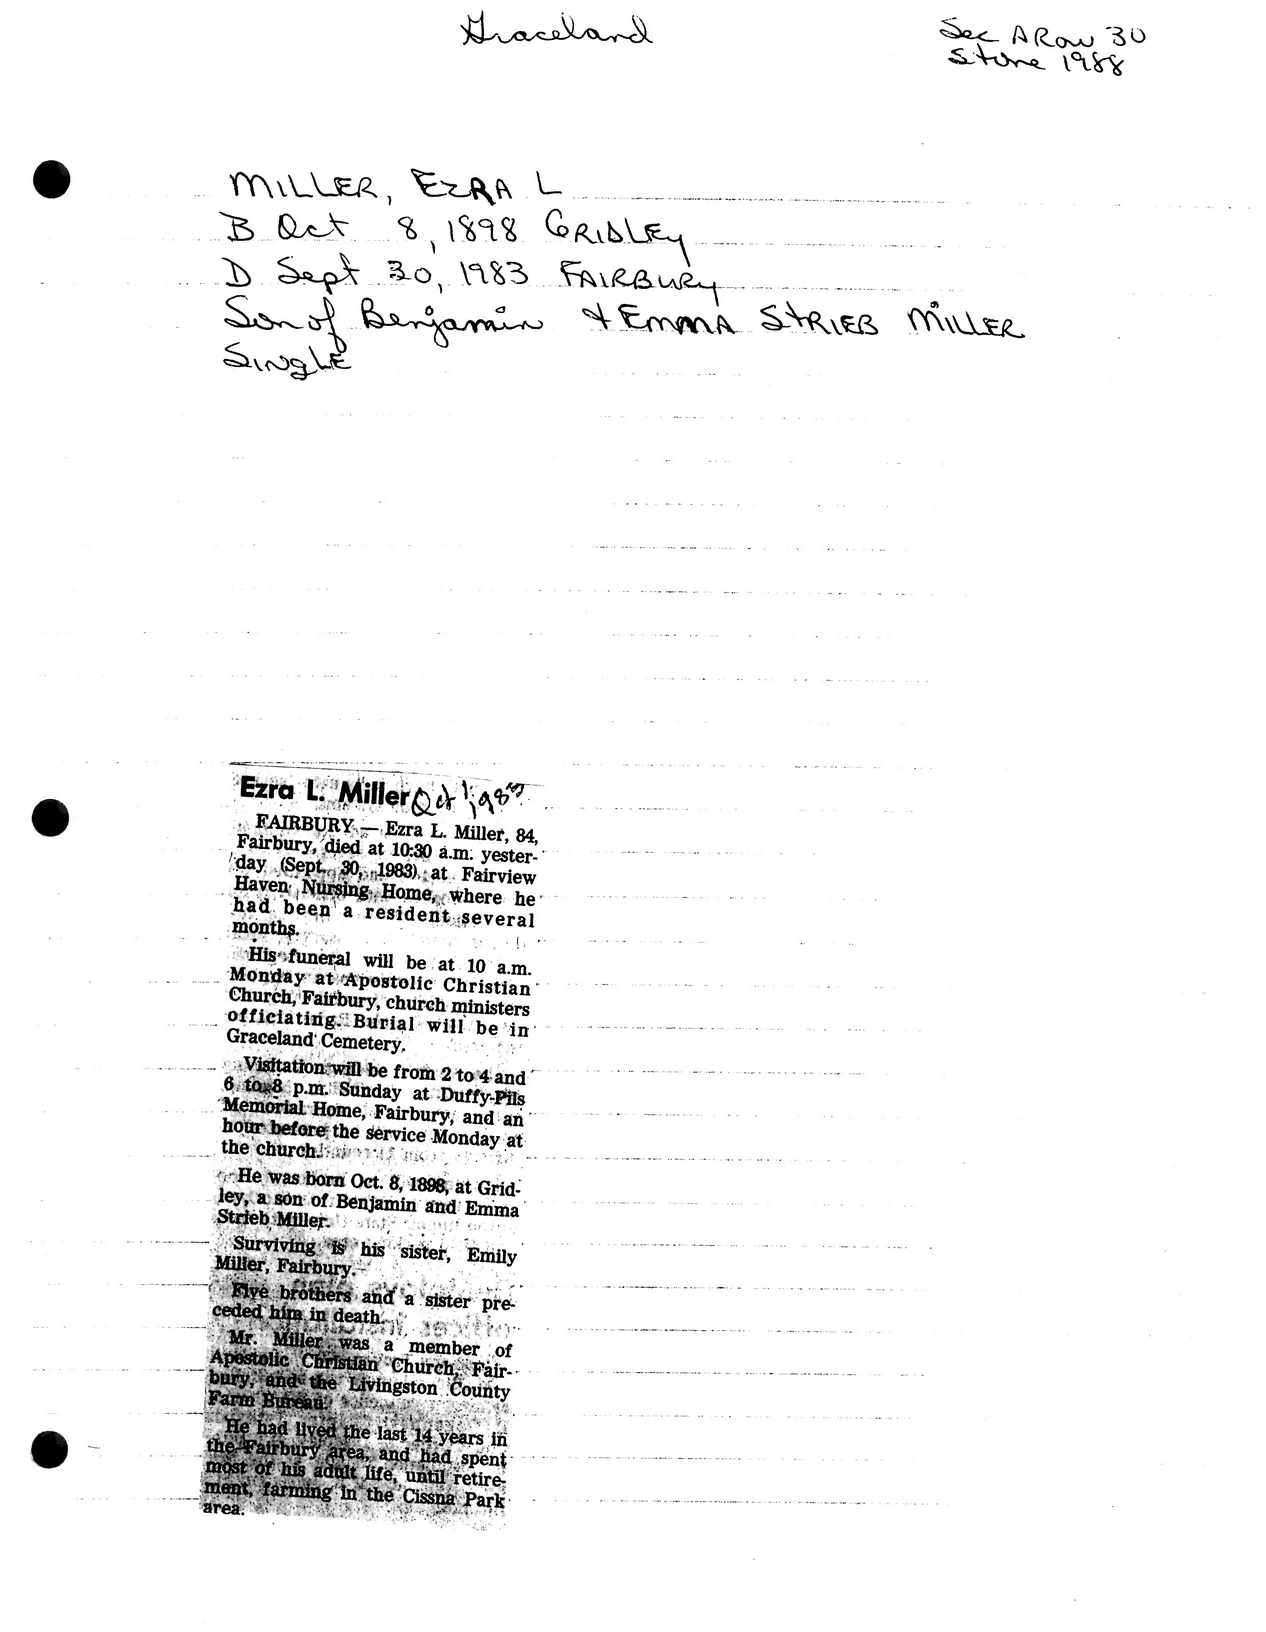 Graceland
Sec A Row 30
Stone 1988
MILLER, EZRA L
B Oct 8, 1898 GRIDLEY
D Sept 30, 1983 FAIRBURY
Son of Benjamin & EMMA STRIEB MILLER
SINGLE
Ezra L. Miller Oct 1, 1983
FAIRBURY — Ezra L. Miller, 84,
Fairbury, died at 10:30 a.m. yester-
day (Sept. 30, 1983) at Fairview
Haven Nursing Home, where he
had been a resident several
months.
His funeral will be at 10 a.m.
Monday at Apostolic Christian
Church, Fairbury, church ministers
officiating. Burial will be in
Graceland Cemetery.
Visitation will be from 2 to 4 and
6 to 8 p.m. Sunday at Duffy-Pils
Memorial Home, Fairbury, and an
hour before the service Monday at
the church.
He was born Oct. 8, 1898, at Grid-
ley, a son of Benjamin and Emma
Strieb Miller.
Surviving is his sister, Emily
Miller, Fairbury.
Five brothers and a sister pre-
ceded him in death.
Mr. Miller was a member of
Apostolic Christian Church, Fair-
bury, and the Livingston County
Farm Bureau.
He had lived the last 14 years in
the Fairbury area, and had spent
most of his adult life, until retire-
ment, farming in the Cissna Park
area.